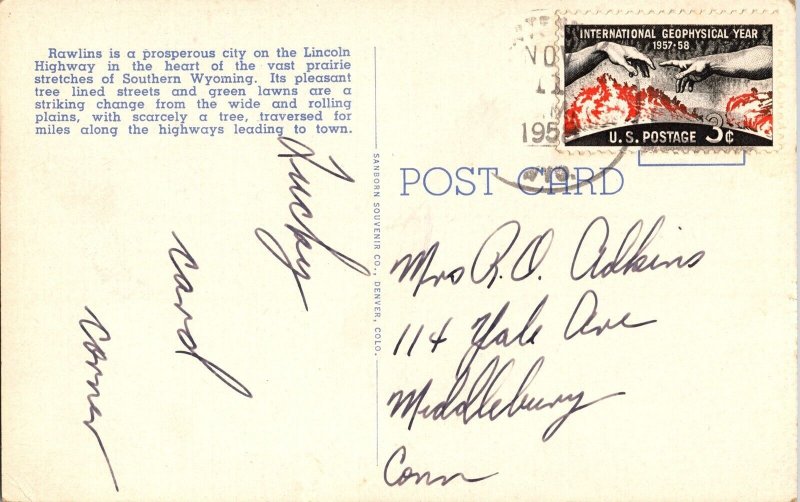 Rawlins is a prosperous city on the Lincoln
Highway in the heart of the vast prairie
stretches of Southern Wyoming. Its pleasant
tree lined streets and green lawns are a
striking change from the wide and rolling
plains, with scarcely a tree, traversed for
miles along the highways leading to town.
Lucky
card
corner
SANBORN SOUVENIR CO., DENVER, COLO.
NOV
11
195
WYO.
INTERNATIONAL GEOPHYSICAL YEAR
1957-58
U.S. POSTAGE 3¢
POST CARD
Mrs R. O. Adkins
114 Yale Ave
Middlebury
Conn